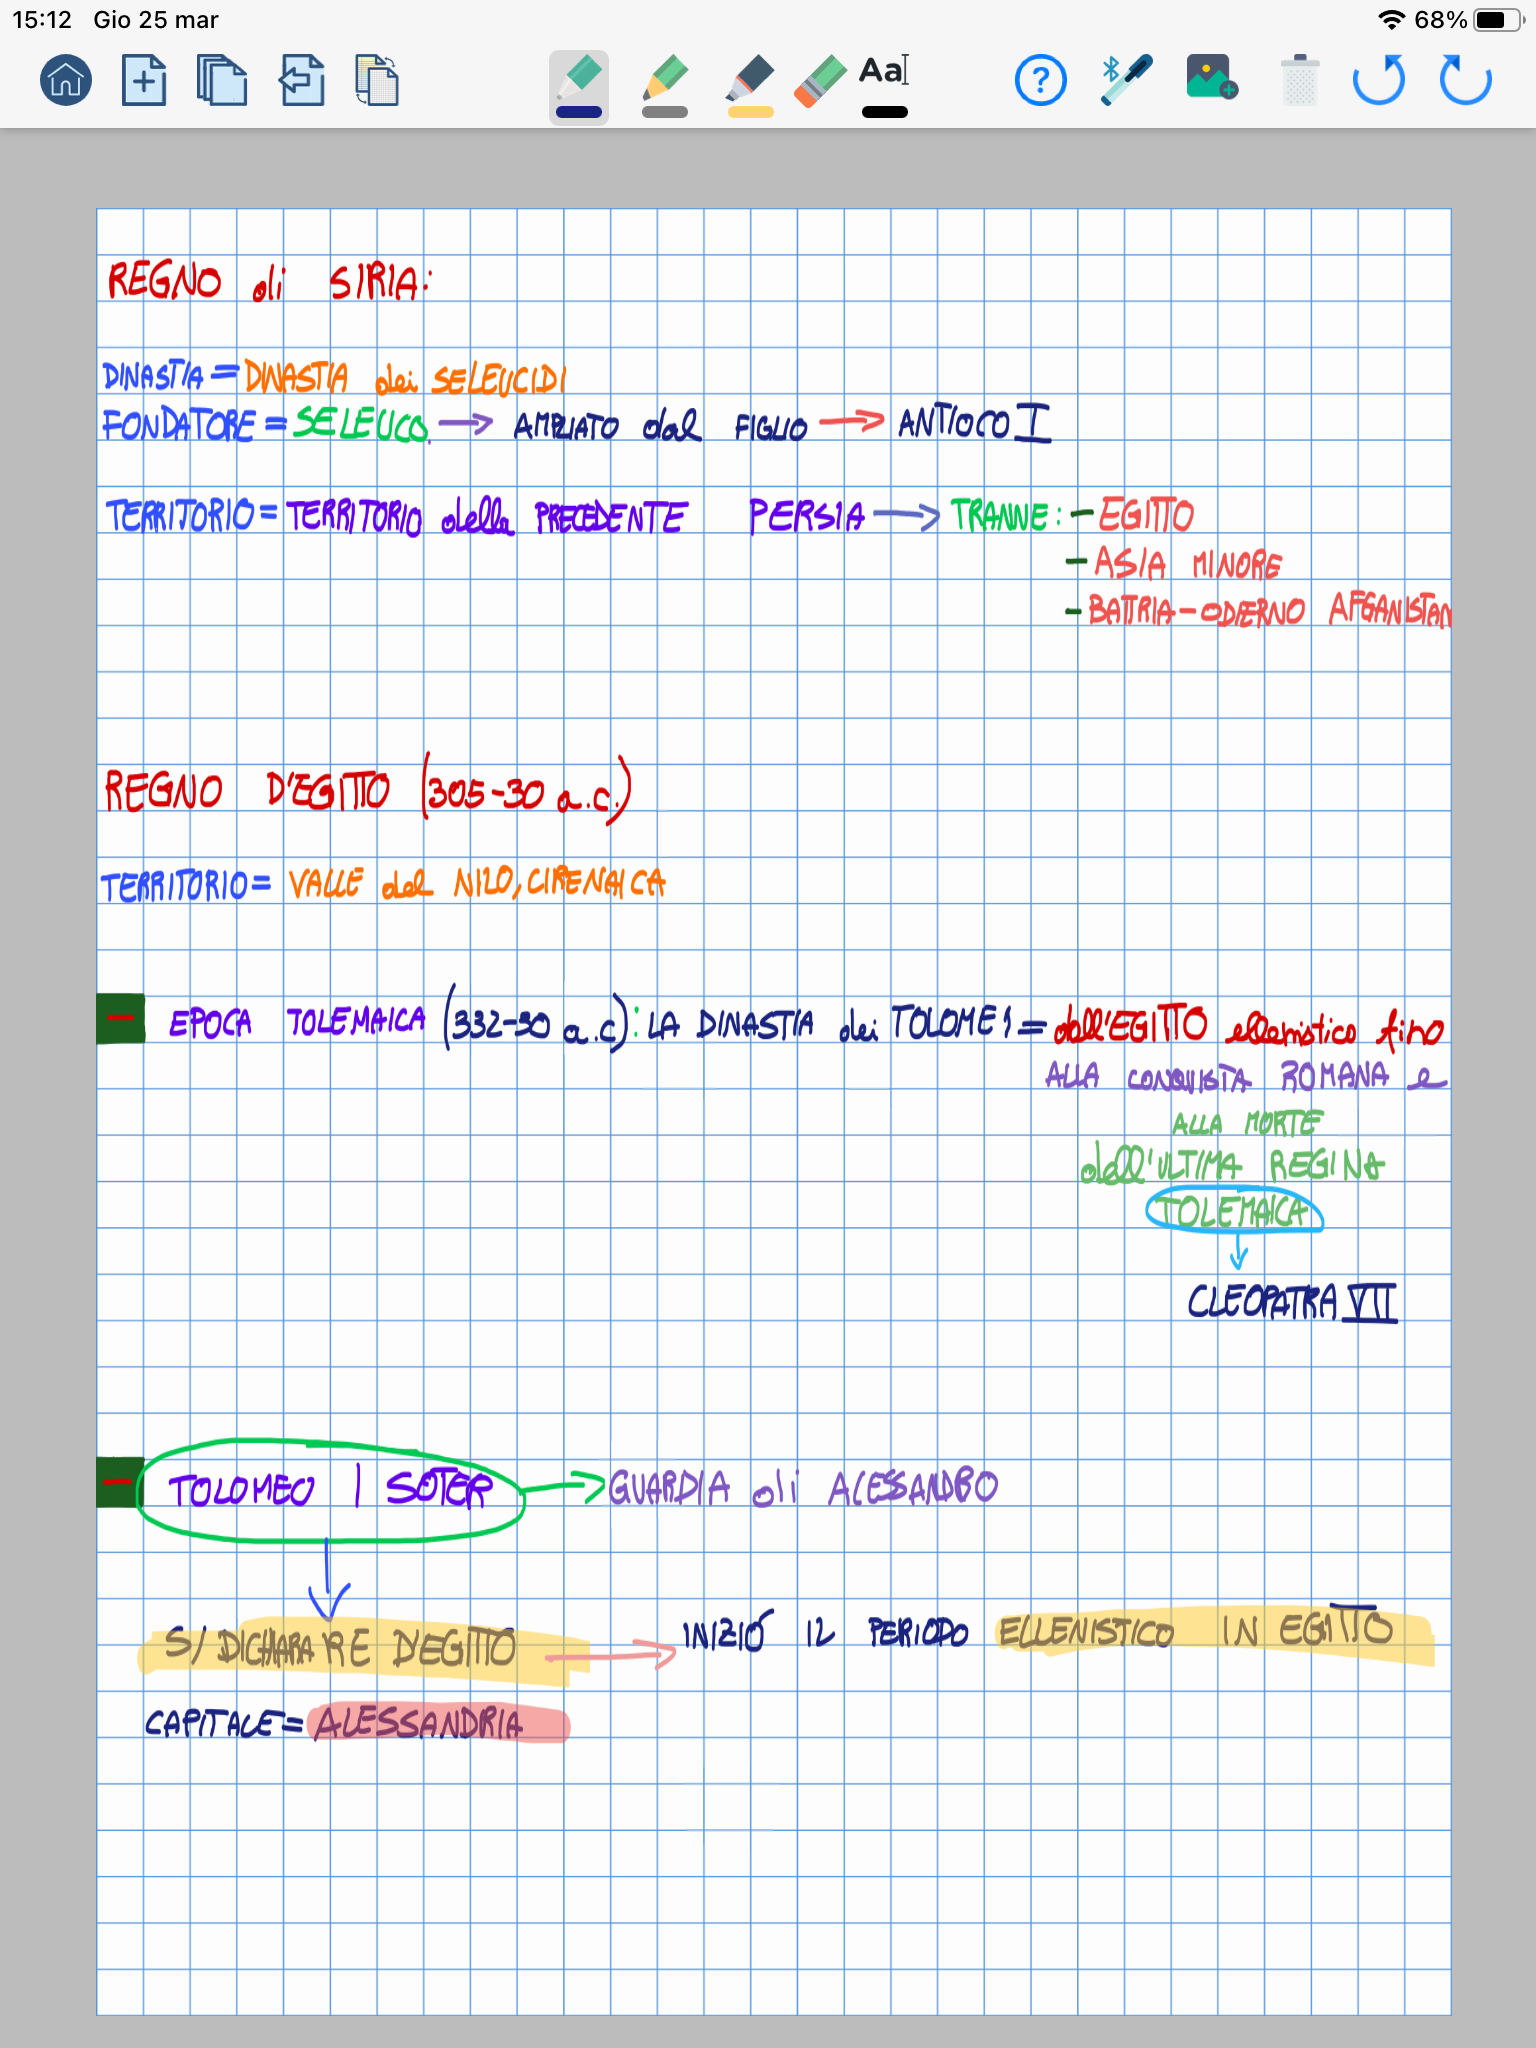 15:12 Gio 25 mar 68%
Aa
?
REGNO di SIRIA:
DINASTIA = DINASTIA dei SELEUCIDI
FONDATORE = SELEUCO. → AMPLIATO dal FIGLIO → ANTIOCO I
TERRITORIO = TERRITORIO della PRECEDENTE PERSIA → TRANNE: - EGITTO
- ASIA MINORE
- BATTRIA - ODIERNO AFGANISTAN
REGNO D'EGITTO (305-30 a.c.)
TERRITORIO = VALLE del NILO, CIRENAICA
- EPOCA TOLEMAICA (332-30 a.c): LA DINASTIA dei TOLOMEI = dell'EGITTO ellenistico fino
ALLA CONQUISTA ROMANA e
ALLA MORTE
dell'ULTIMA REGINA
TOLEMAICA
↓
CLEOPATRA VII
- TOLOMEO I SOTER → GUARDIA di ALESSANDRO
↓
SI DICHIARA RE D'EGITTO → INIZIÓ IL PERIODO ELLENISTICO IN EGITTO
CAPITALE = ALESSANDRIA